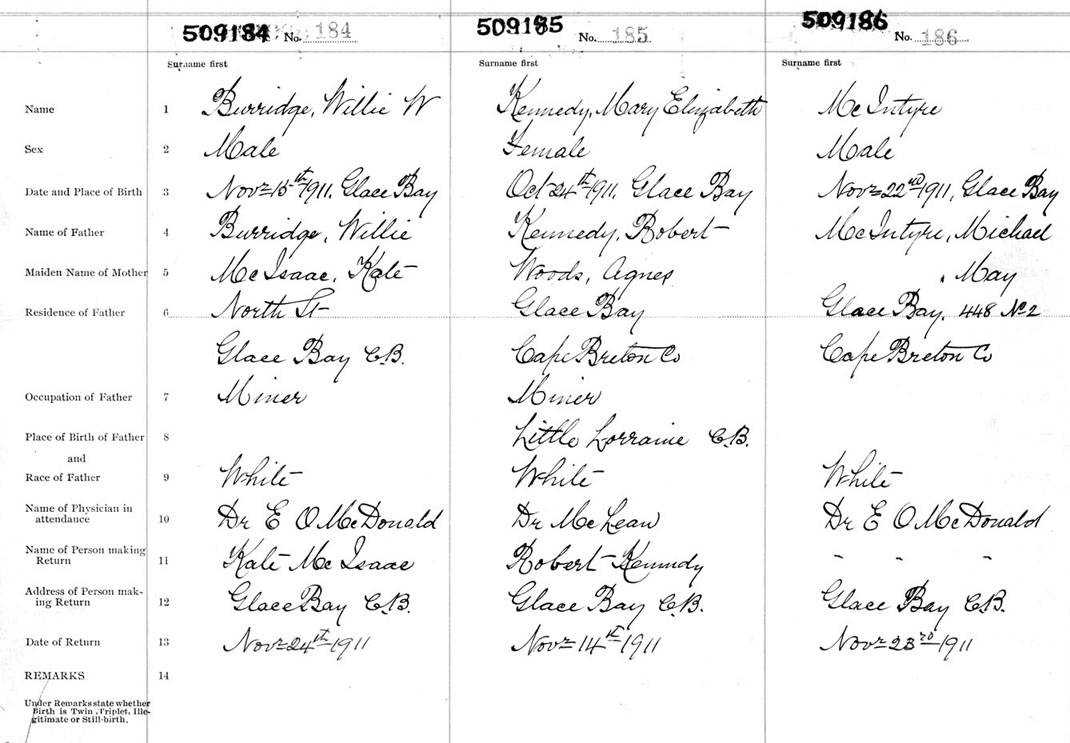 509184 No. 184 509185 No. 185 509186 No. 186
Surname first Surname first Surname first
Name 1 Burridge, Willie W Kennedy, Mary Elizabeth McIntyre
Sex 2 Male Female Male
Date and Place of Birth 3 Nov 15th 1911, Glace Bay Oct 24th 1911, Glace Bay Nov 22nd 1911, Glace Bay
Name of Father 4 Burridge, Willie Kennedy, Robert McIntyre, Michael
Maiden Name of Mother 5 McIsaac, Kate Woods, Agnes " May
Residence of Father 6 North St Glace Bay Glace Bay, 448 No 2
Glace Bay C.B. Cape Breton Co Cape Breton Co
Occupation of Father 7 Miner Miner
Place of Birth of Father 8 Little Lorraine C.B.
and
Race of Father 9 White White White
Name of Physician in
attendance 10 Dr E O McDonald Dr McLean Dr E O McDonald
Name of Person making
Return 11 Kate McIsaac Robert Kennedy " " "
Address of Person mak-
ing Return 12 Glace Bay C.B. Glace Bay C.B. Glace Bay C.B.
Date of Return 13 Nov 24th 1911 Nov 14th 1911 Nov 23rd 1911
REMARKS 14
Under Remarks state whether
Birth is Twin, Triplet, Ille-
gitimate or Still-birth.